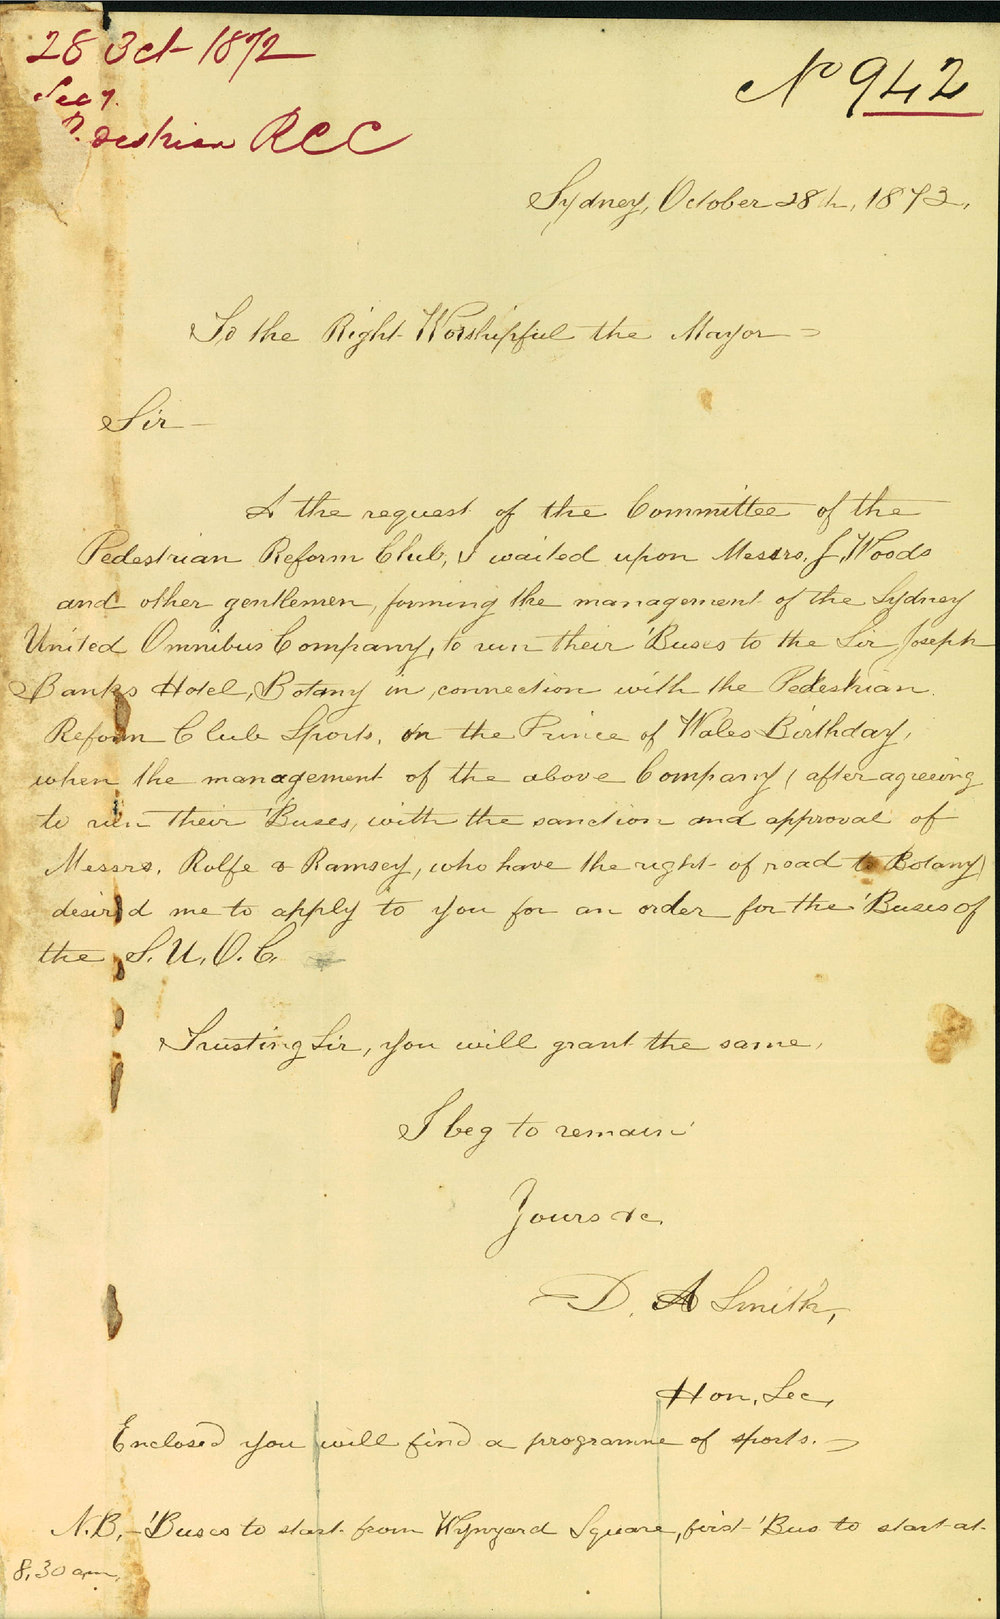 28 Oct 1872
Secy.
destrian RCC
No 942
Sydney, October 28th, 1872.
To the Right Worshipful the Mayor
Sir
At the request of the Committee of the
Pedestrian Reform Club, I waited upon Messrs. J. Woods
and other gentlemen, forming the management of the Sydney
United Omnibus Company, to run their 'Buses to the Sir Joseph
Banks Hotel, Botany in connection with the Pedestrian
Reform Club Sports, on the Prince of Wales Birthday,
when the management of the above Company (after agreeing
to run their 'Buses, with the sanction and approval of
Messrs. Rolfe & Ramsey, who have the right of road to Botany)
desired me to apply to you for an order for the 'Buses of
the S. U. O. C.
Trusting Sir, you will grant the same,
I beg to remain
Yours &c.
D. A Smith,
Hon. Sec.
Enclosed you will find a programme of sports.
N.B. – 'Buses to start from Wynyard Square, first 'Bus to start at
8.30 am.